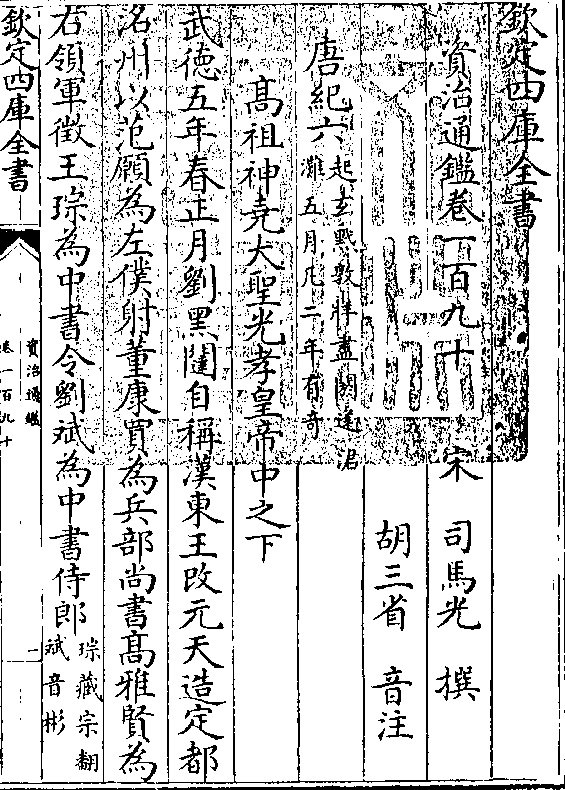 欽定四庫全書
資治通鑑卷一百九十
宋 司馬光 撰
胡三省 音注
唐紀六起玄黓敦牂盡閼逢涒
灘五月凡二年有奇
高祖神堯大聖光孝皇帝中之下
武徳五年春正月劉黑闥自稱漢東王改元天造定都
洺州以范願為左僕射董康買為兵部尚書髙雅賢為
右領軍徵王琮為中書令劉斌為中書侍郎琮藏宗翻
斌音彬
欽定四庫全書
資治通鑑
卷一百九十
一